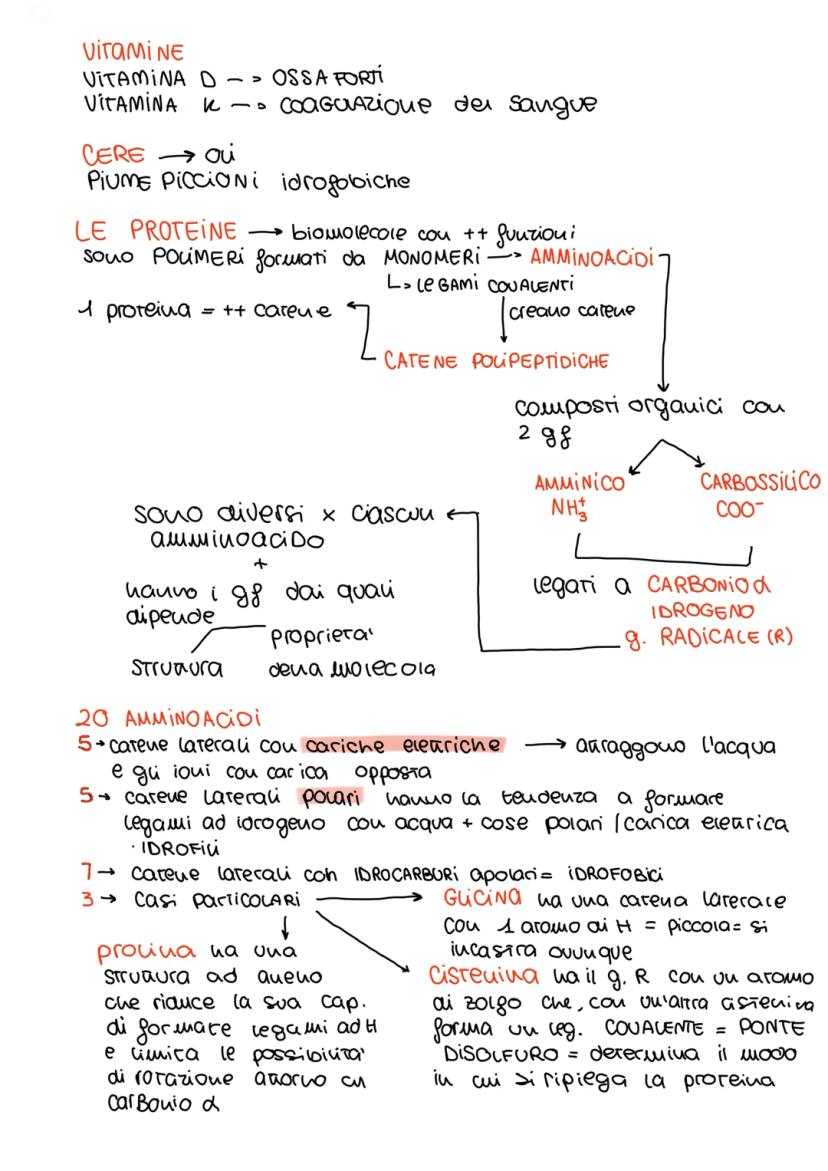 VITAMINE
VITAMINA D --> OSSA FORTI
VITAMINA K --> COAGULAZIONE del sangue
CERE → oli
PIUME PICCIONI idrofobiche
LE PROTEINE → biomolecole con ++ funzioni
sono POLIMERI formati da MONOMERI → AMMINOACIDI
↳ LEGAMI COVALENTI
1 proteina = ++ catene
creano catene
CATENE POLIPEPTIDICHE
composti organici con
2 gf
AMMINICO
NH₃⁺
CARBOSSILICO
COO⁻
sono diversi x ciascun
amminoacido
+
hanno i gf dai quali
dipende
proprietà
struttura della molecola
legati a CARBONIO α
IDROGENO
g. RADICALE (R)
20 AMMINOACIDI
5→ catene laterali con cariche elettriche → attraggono l'acqua
e gli ioni con carica opposta
5→ catene laterali polari hanno la tendenza a formare
legami ad idrogeno con acqua + cose polari / carica elettrica
· IDROFILI
7→ catene laterali con IDROCARBURI apolari = IDROFOBICI
3→ casi PARTICOLARI
GLICINA ha una catena laterale
con 1 atomo di H = piccola = si
incastra ovunque
prolina ha una
struttura ad anello
che riduce la sua cap.
di formare legami ad H
e limita le possibilità
di rotazione attorno al
carbonio α
cisteina ha il g. R con un atomo
di zolfo che, con un'altra cisteina
forma un leg. COVALENTE = PONTE
DISOLFURO = determina il modo
in cui si ripiega la proteina